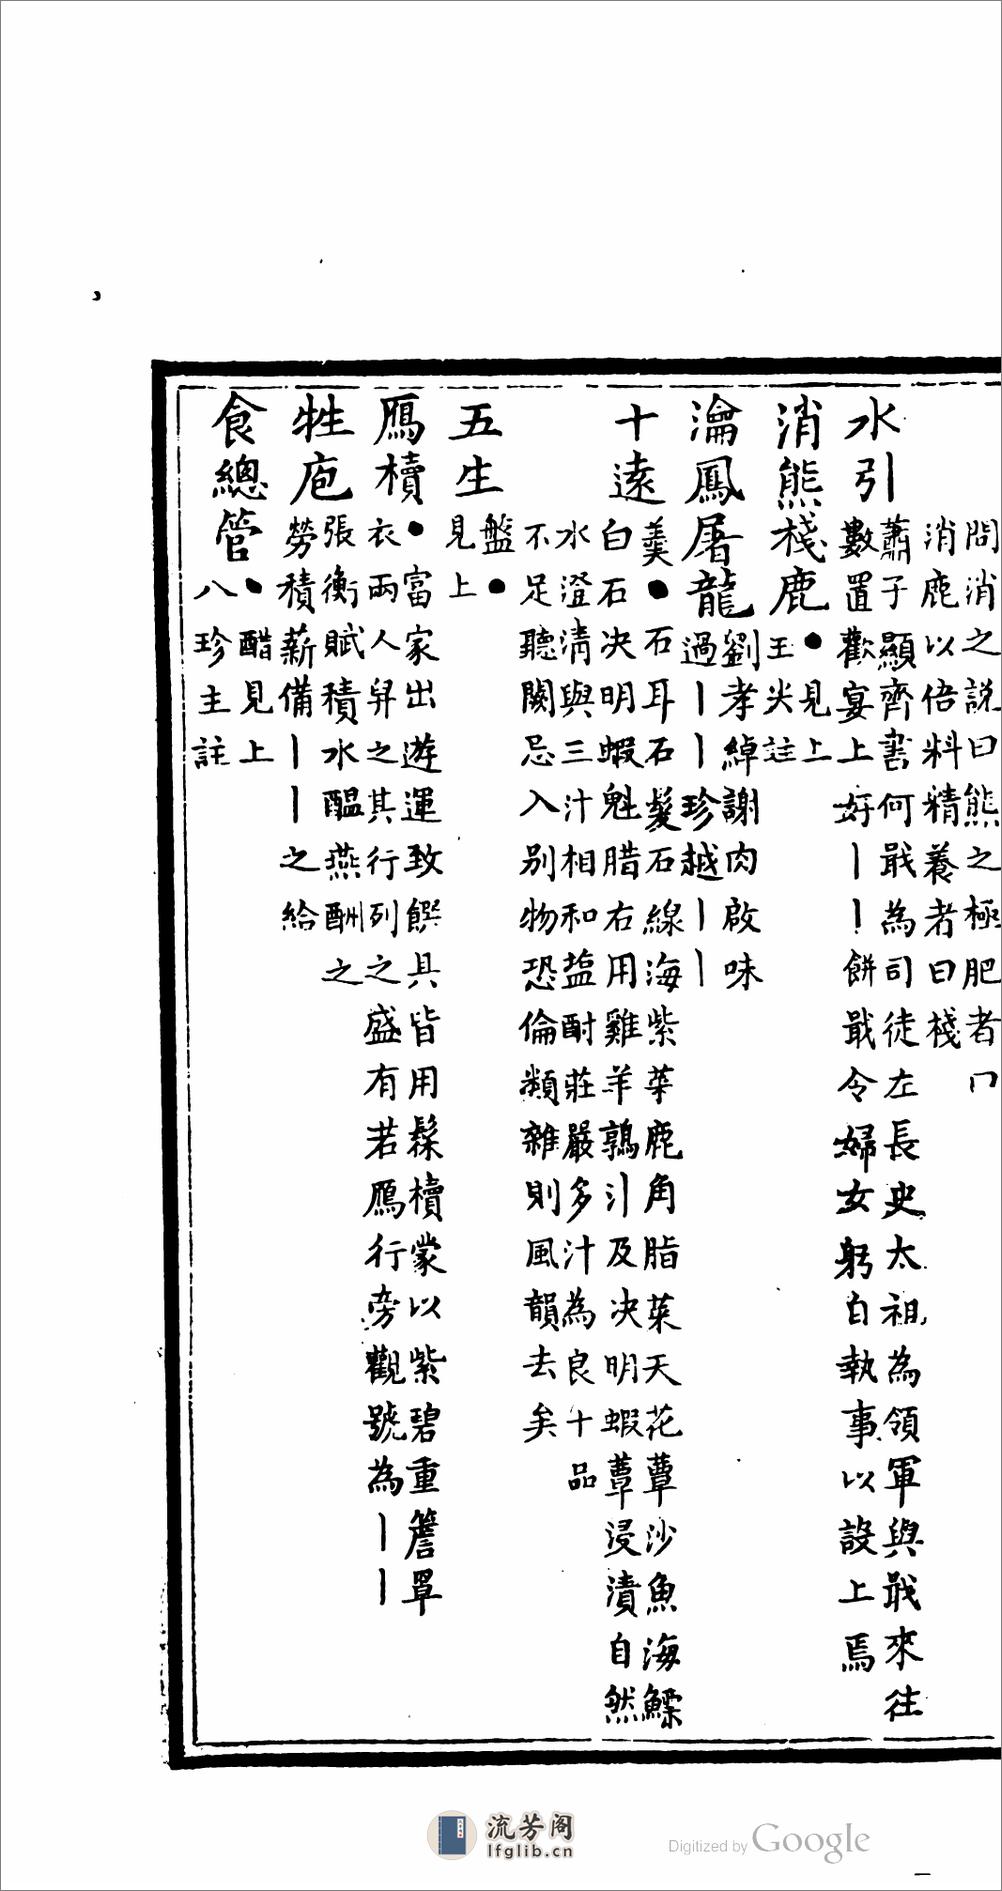 問消之説曰熊之極肥者曰
消鹿以倍料精養者曰棧
水引
蕭子顯齊書何戢為司徒左長史太祖為領軍與戢來往
數置歡宴上好丨丨餅戢令婦女躬自執事以設上焉
消熊棧鹿
●見上
王尖註
瀹鳳屠龍
劉孝綽謝肉啟味
過丨丨珍越丨丨
十遠
羹●石耳石髮石線海紫菜鹿角脂菜天花蕈沙魚海鰾
白石决明蝦魁腊右用雞羊鶉汁及决明蝦蕈浸漬自然
水澄淸與三汁相和盐酎莊嚴多汁為良十品
不足聽闕忌入别物恐倫類雜則風韻去矣
五生
盤●
見上
鴈櫝
●富家出遊運致饌具皆用髹櫝蒙以紫碧重簷罩
衣兩人舁之其行列之盛有若鴈行旁觀號為丨丨
牲庖
張衡賦積水醖燕酬之
勞積薪備丨丨之給
食總管
●醋見上
八珍主註
流芳阁
lfglib.cn
Digitized by Google